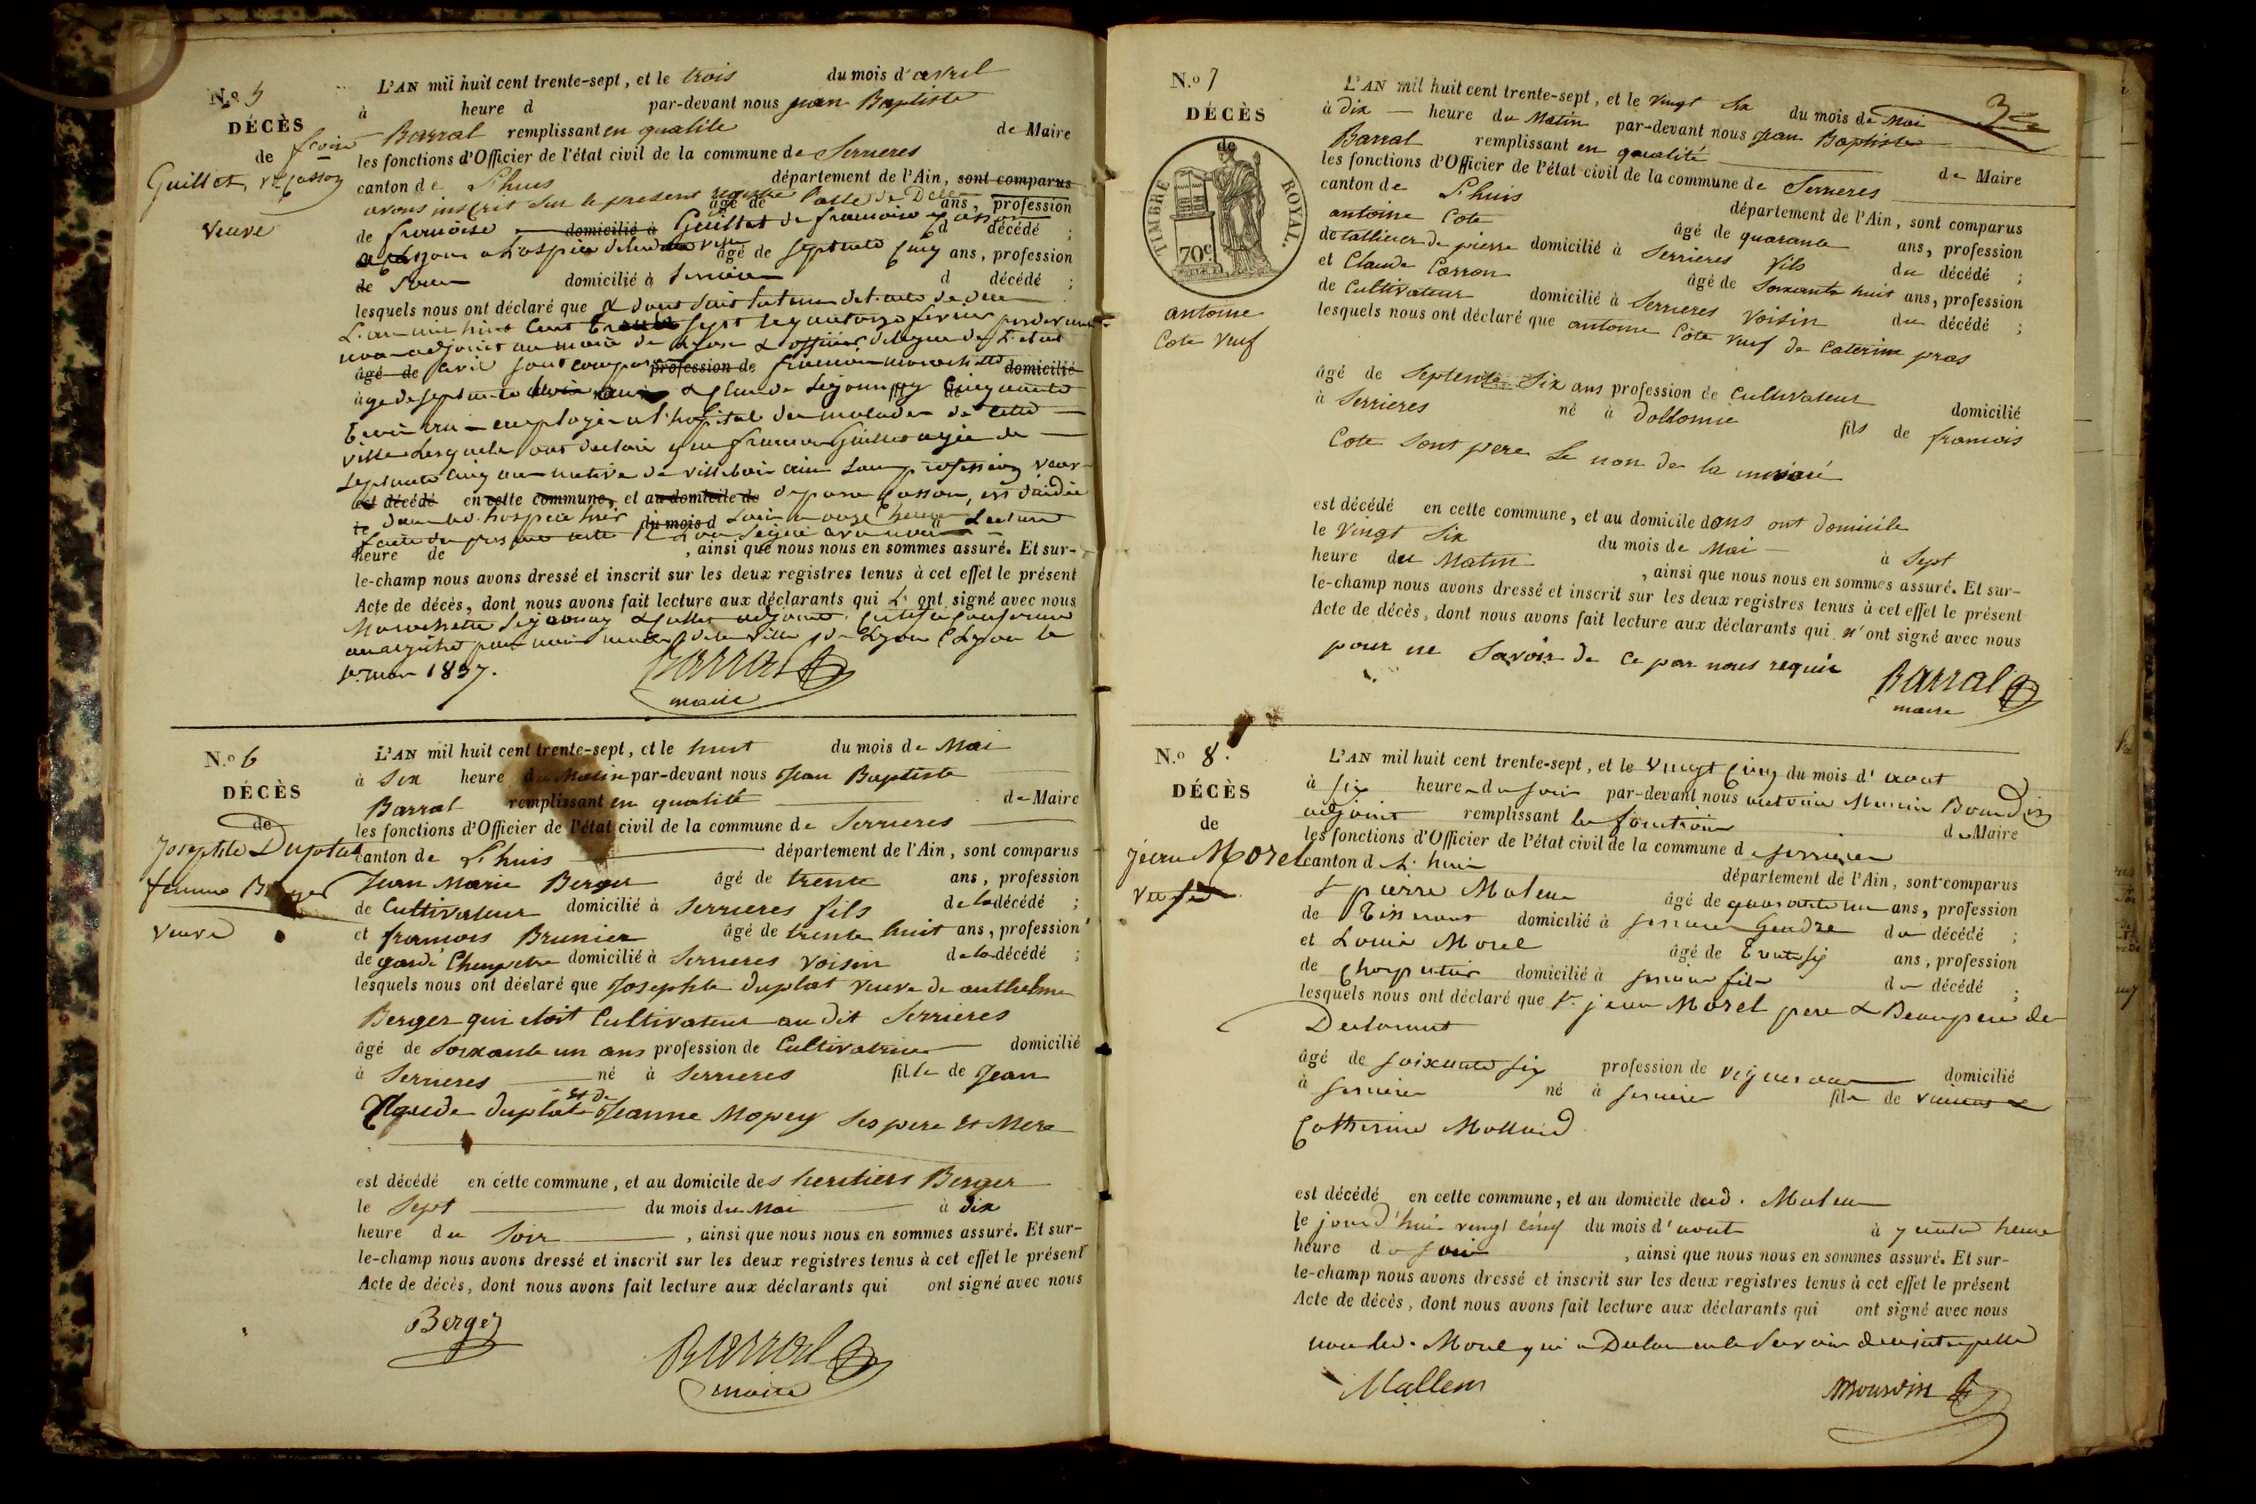 N.o 5
DÉCÈS
de
Guillet, Ve Casson
Veuve
L'AN mil huit cent trente-sept, et le trois du mois d'avril
à heure d par-devant nous jean Baptiste
Barral remplissant en qualite de Maire
les fonctions d'Officier de l'état civil de la commune de Serrieres
canton de Lhuis département de l'Ain, sont comparus
avons inscrit sur le present registre l'acte de Déces
âgé de ans, profession
de francoise domicilié à Guillet de francoise d décédé ;
âgé de septante cinq ans, profession
de domicilié à Serrieres d décédé ;
lesquels nous ont déclaré que dont suit la teneur
L'an mil huit Cent trente sept le quatorze fevrier par devant
nous adjoint au maire de Lyon & officier delegue de L'etat
âgé de civil sont comparus profession de domicilié
âgé de septante trois ans & Claude Sejournay Cinquante
trois ans employés a l'hopital des malades de cette
ville lesquels ont declaré que francoise Guillet agée de
septante cinq ans native de villebois ain sans profession veuve
est décédé en cette commune, et au domicile de
du mois d Lecture
heure de , ainsi que nous nous en sommes assuré. Et sur-
le-champ nous avons dressé et inscrit sur les deux registres tenus à cet effet le présent
Acte de décès, dont nous avons fait lecture aux déclarants qui ont signé avec nous
de la ville de Lyon Lyon le
1er mars 1837.
Barral
maire
N.o 6
DÉCÈS
de
Josephte Duplat
femme Berger
Veuve
L'AN mil huit cent trente-sept, et le huit du mois de Mai
à Six heure du Matin par-devant nous Jean Baptiste
Barral remplissant en qualité de Maire
les fonctions d'Officier de l'état civil de la commune de Serrieres
canton de Lhuis département de l'Ain, sont comparus
Jean Marie Berger âgé de trente ans, profession
de Cultivateur domicilié à Serrieres fils de la décédé ;
et francois Brunier âgé de trente huit ans, profession
de garde Champetre domicilié à Serrieres Voisin de la décédé ;
lesquels nous ont déclaré que Josephte duplat veuve de anthelme
Berger qui etoit Cultivateur au dit Serrieres
âgé de Soixante un ans profession de Cultivatrice domicilié
à Serrieres né à Serrieres fille de Jean
Claude duplat et de Jeanne Mopey Ses pere et Mere
est décédé en cette commune, et au domicile des heritiers Berger
le Sept du mois du Mai à dix
heure du Soir , ainsi que nous nous en sommes assuré. Et sur-
le-champ nous avons dressé et inscrit sur les deux registres tenus à cet effet le présent
Acte de décès, dont nous avons fait lecture aux déclarants qui ont signé avec nous
Berger
Barral
maire
N.o 7
DÉCÈS
de
TIMBRE ROYAL.
70c
antoine
Cote Veuf
L'AN mil huit cent trente-sept, et le Vingt Six du mois de Mai
à dix heure du Matin par-devant nous Jean Baptiste
Barral remplissant en qualité de Maire
les fonctions d'Officier de l'état civil de la commune de Serrieres
canton de Lhuis département de l'Ain, sont comparus
antoine Cote âgé de quarante ans, profession
de tallieur de pierre domicilié à Serrieres fils du décédé ;
et Claude Carron âgé de Soixante huit ans, profession
de Cultivateur domicilié à Serrieres Voisin du décédé ;
lesquels nous ont déclaré que antoine Cote veuf de Caterine pras
âgé de Septente Six ans profession de Cultivateur domicilié
à Serrieres né à Dollomie fils de francois
Cote Sont pere Le non de la mere
est décédé en cette commune, et au domicile dans ont domicile
le Vingt Six du mois de Mai à Sept
heure du Matin , ainsi que nous nous en sommes assuré. Et sur-
le-champ nous avons dressé et inscrit sur les deux registres tenus à cet effet le présent
Acte de décès, dont nous avons fait lecture aux déclarants qui n'ont signé avec nous
pour ne Savoir de Ce par nous requis
Barral
maire
N.o 8.
DÉCÈS
de
jean Morel
L'AN mil huit cent trente-sept, et le Vingt Cinq du mois d'aout
à six heure du soir par-devant nous antoine Bourdin
adjoint remplissant les fonctions de Maire
les fonctions d'Officier de l'état civil de la commune de serrieres
canton de L'huis département de l'Ain, sont comparus
Sr pierre Maleu âgé de quarante un ans, profession
de Tisserant domicilié à serrieres Gendre du décédé ;
et Louis Morel âgé de Trente six ans, profession
de Charpentier domicilié à serrieres fils du décédé ;
lesquels nous ont déclaré que Sr jean Morel pere & Beaupere des
Declarant
âgé de soixante six profession de vigneron domicilié
à serrieres né à serrieres fils de
Catherine Mollard
est décédé en cette commune, et au domicile dud. Maleu
le jourd'hui vingt cinq du mois d'aout à quatre heure
heure du soir , ainsi que nous nous en sommes assuré. Et sur-
le-champ nous avons dressé et inscrit sur les deux registres tenus à cet effet le présent
Acte de décès, dont nous avons fait lecture aux déclarants qui ont signé avec nous
non led. Morel qui a Declaré ne le Savoir de ce interpellé
Mallein
Bourdin